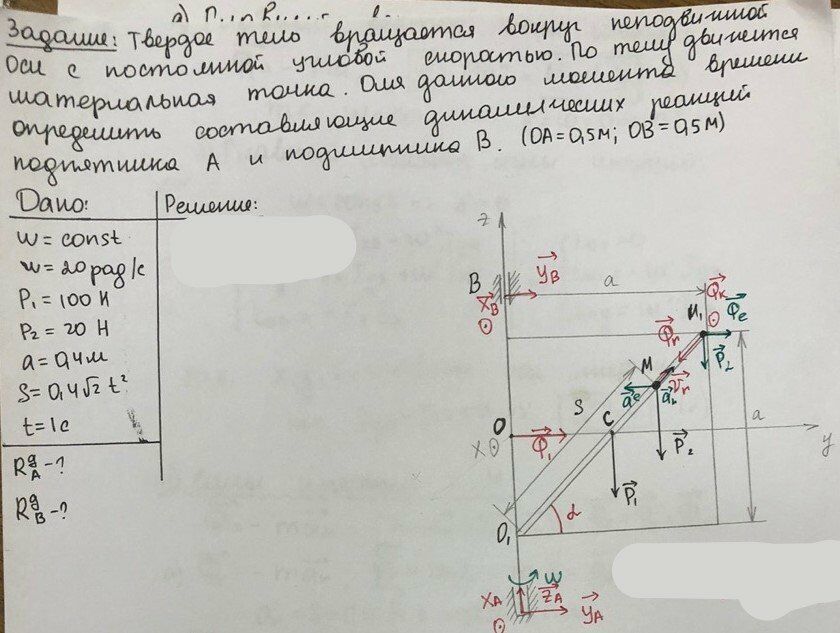 Задание: Твердое тело вращается вокруг неподвижной
оси с постоянной угловой скоростью. По телу движется
материальная точка. Для данного момента времени
определить составляющие динамических реакций
подпятника А и подшипника В. (OA=0,5м; OB=0,5м)
Дано:
Решение:
w = const
w = 20 рад/с
P₁ = 100 Н
P₂ = 20 Н
a = 0,4м
S = 0,4√2 t²
t = 1с
R_A^g - ?
R_B^g - ?
z
B
X_B
y_B
a
M₁
Φ_k
Φ_e
Φ_r
P₂
M
V_r
a_e
a_r
S
O
X
Φ₁
C
P₂
P₁
a
y
O₁
α
w
X_A
Z_A
y_A